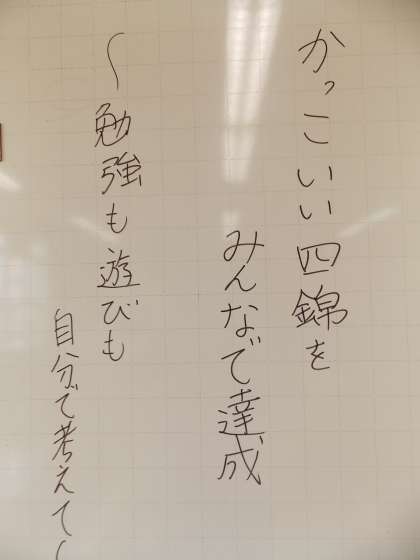 かっこいい四錦を
みんなで達成
～勉強も遊びも
自分で考えて～